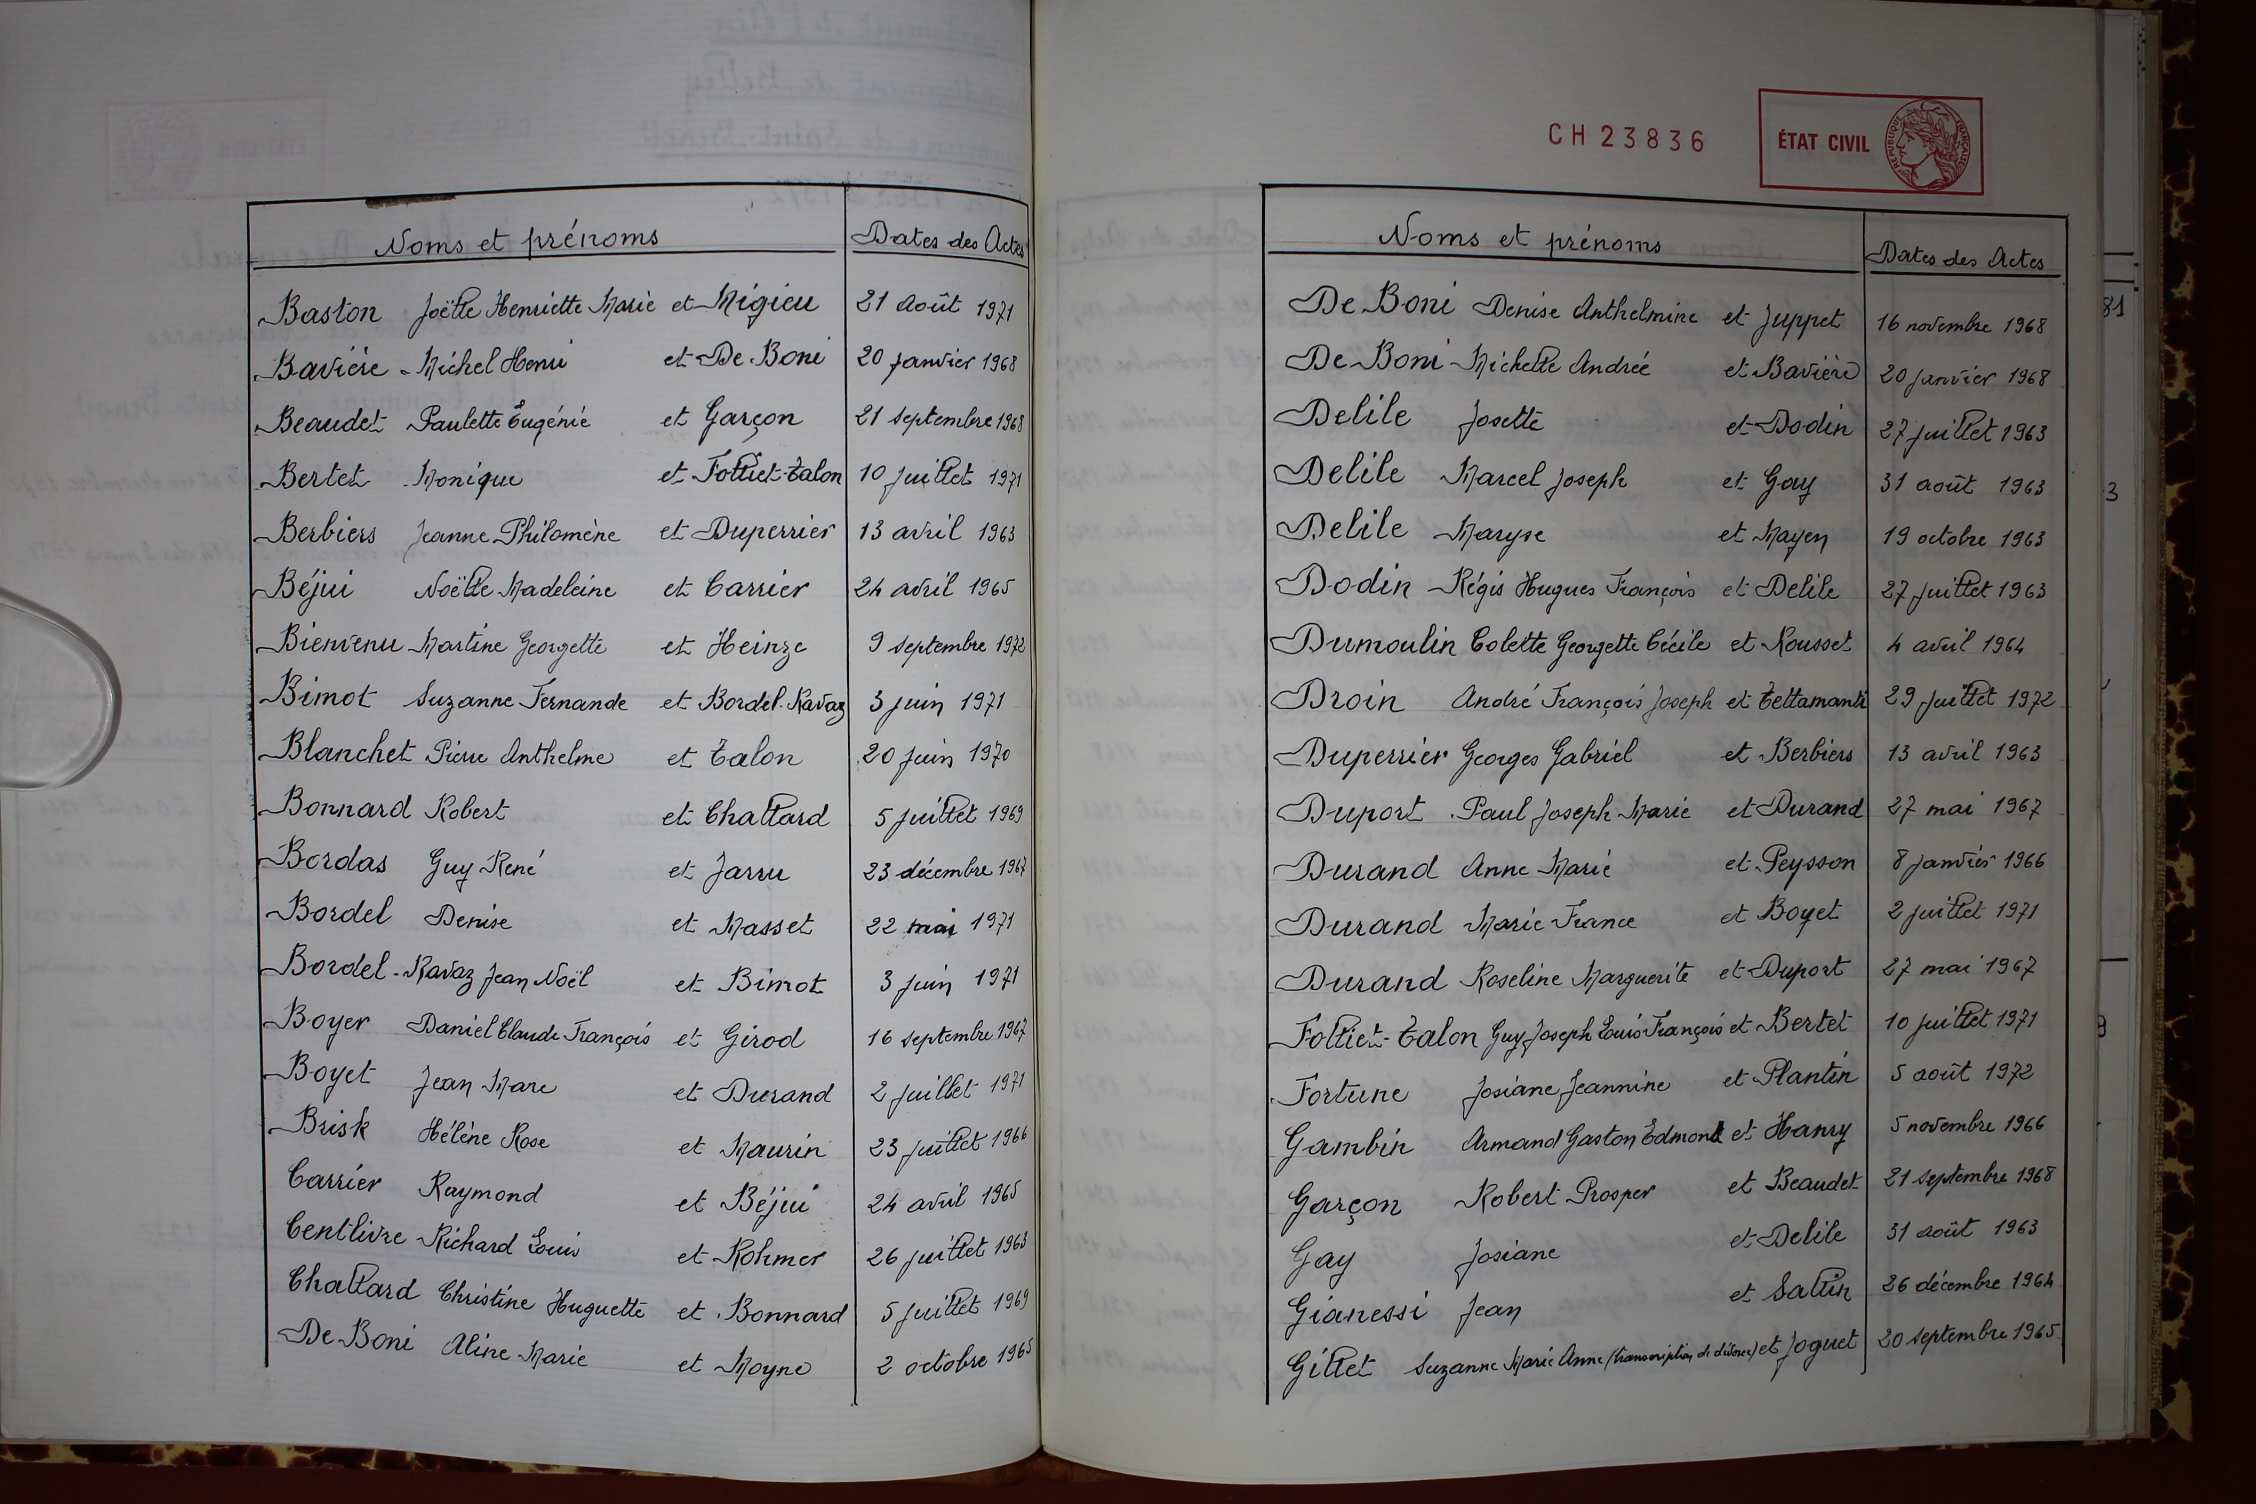 Noms et prénoms Dates des Actes
Baston Joëlle Henriette Marie et Migieu 21 août 1971
Bavière Michel Henri et De Boni 20 janvier 1968
Beaudet Paulette Eugénie et Garçon 21 septembre 1968
Bertet Monique et Folliet-Talon 10 juillet 1971
Berbiers Jeanne Philomène et Duperrier 13 avril 1963
Béjui Noëlle Madeleine et Carrier 24 avril 1965
Bienvenu Martine Georgette et Heinze 9 septembre 1972
Bimot Suzanne Fernande et Bordel-Ravaz 3 juin 1971
Blanchet Pierre Anthelme et Talon 20 juin 1970
Bonnard Robert et Challard 5 juillet 1969
Bordas Guy René et Jarru 23 décembre 1967
Bordel Denise et Masset 22 mai 1971
Bordel-Ravaz Jean Noël et Bimot 3 juin 1971
Boyer Daniel Claude François et Girod 16 septembre 1967
Boyet Jean Marc et Durand 2 juillet 1971
Brisk Hélène Rose et Maurin 23 juillet 1966
Carrier Raymond et Béjui 24 avril 1965
Centlivre Richard Louis et Rohmer 26 juillet 1963
Challard Christine Huguette et Bonnard 5 juillet 1969
De Boni Aline Marie et Moyne 2 octobre 1965
CH 23836
ÉTAT CIVIL
RÉPUBLIQUE FRANÇAISE
Noms et prénoms Dates des Actes
De Boni Denise Anthelmine et Juppet 16 novembre 1968
De Boni Michelle Andrée et Bavière 20 janvier 1968
Delile Josette et Dodin 27 juillet 1963
Delile Marcel Joseph et Gay 31 août 1963
Delile Maryse et Mayen 19 octobre 1963
Dodin Régis Hugues François et Delile 27 juillet 1963
Dumoulin Colette Georgette Cécile et Rousset 4 avril 1964
Droin André François Joseph et Tettamanti 29 juillet 1972
Duperrier Georges Gabriel et Berbiers 13 avril 1963
Duport Paul Joseph Marie et Durand 27 mai 1967
Durand Anne Marie et Peysson 8 janvier 1966
Durand Marie France et Boyet 2 juillet 1971
Durand Roseline Marguerite et Duport 27 mai 1967
Folliet-Talon Guy Joseph Louis François et Bertet 10 juillet 1971
Fortune Josiane Jeannine et Plantin 5 août 1972
Gambin Armand Gaston Edmond et Hanry 5 novembre 1966
Garçon Robert Prosper et Beaudet 21 septembre 1968
Gay Josiane et Delile 31 août 1963
Gianessi Jean et Sallin 26 décembre 1964
Gillet Suzanne Marie Anne (transcription de divorce) et Joguet 20 septembre 1965